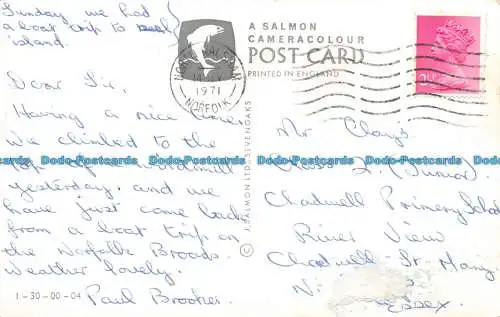 Sunday we had
a boat trip to
island.
Dear Sir,
Having a nice time
We climbed to the
top of windmill
yesterday, and we
have just come back
from a boat trip on
the Norfolk Broads.
Weather lovely.
Paul Brooker
1-30-00-04
A SALMON
CAMERACOLOUR
POST CARD
PRINTED IN ENGLAND
1971
NORFOLK
© J. SALMON LTD. SEVENOAKS
Mr Clays
Class 2 (Junior)
Chadwell Primary School
River View
Chadwell St. Mary
Essex.
Dodo-Postcards Dodo-Postcards Dodo-Postcards Dodo-Postcards Dodo-Postcards
Dodo-Postcards Dodo-Postcards Dodo-Postcards Dodo-Postcards Dodo-Postcards